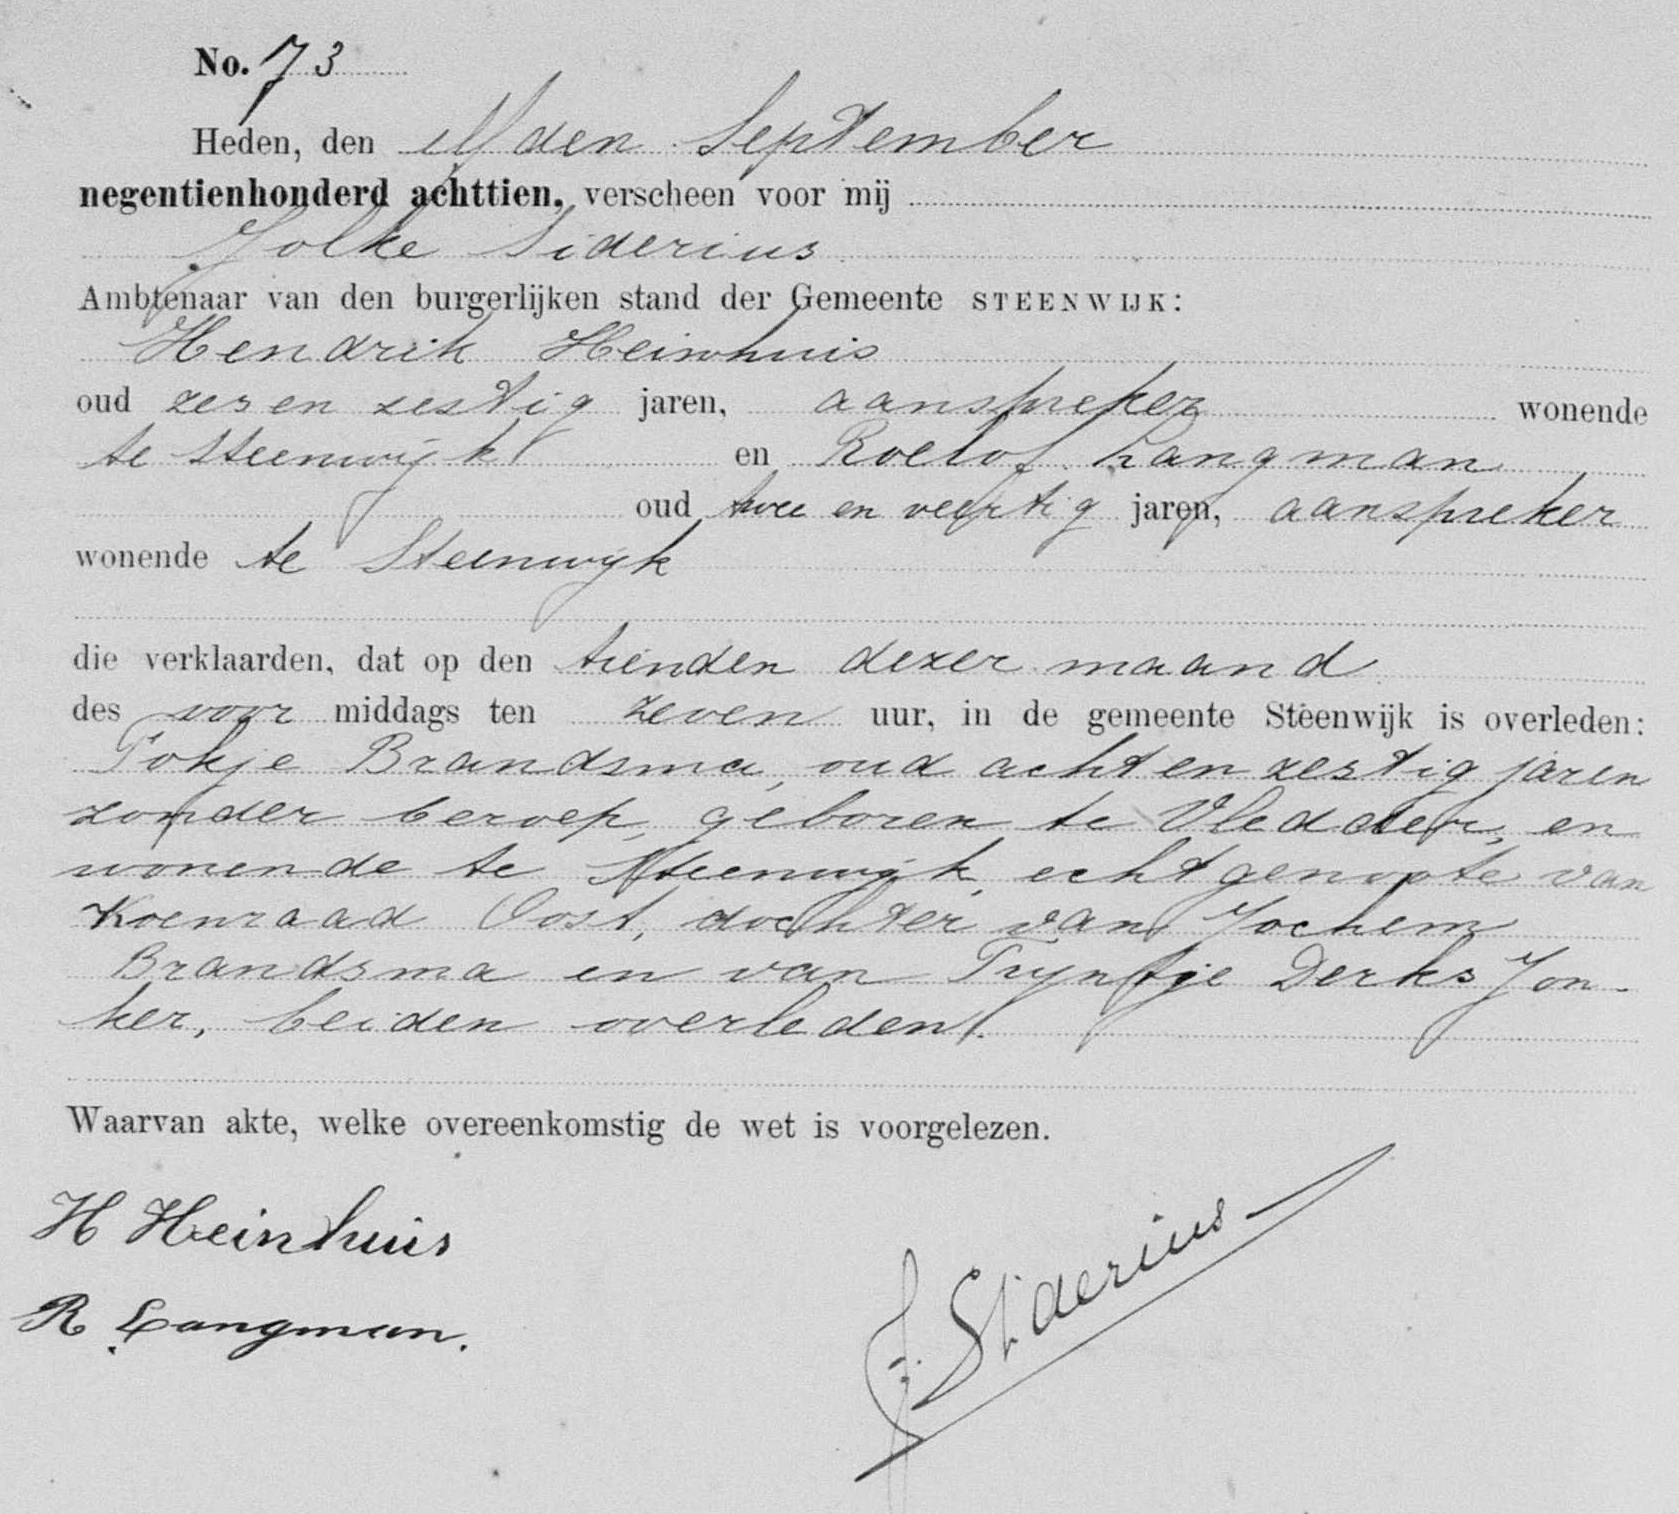 No. 73
Heden, den elfden September
negentienhonderd achttien, verscheen voor mij
Jolke Siderius
Ambtenaar van den burgerlijken stand der Gemeente STEENWIJK:
Hendrik Heinhuis
oud zes en zestig jaren, aanspreker wonende
te Steenwijk en Roelof Langman
oud twee en veertig jaren, aanspreker
wonende te Steenwijk
die verklaarden, dat op den tienden dezer maand
des voor middags ten zeven uur, in de gemeente Steenwijk is overleden:
Fokje Brandsma, oud acht en zestig jaren
zonder beroep, geboren te Vledder, en
wonende te Steenwijk, echtgenoote van
Koenraad Oost, dochter van Jochem
Brandsma en van Trijntje Derks Jon-
ker, beiden overleden.
Waarvan akte, welke overeenkomstig de wet is voorgelezen.
H Heinhuis
R Langman.
J. Siderius